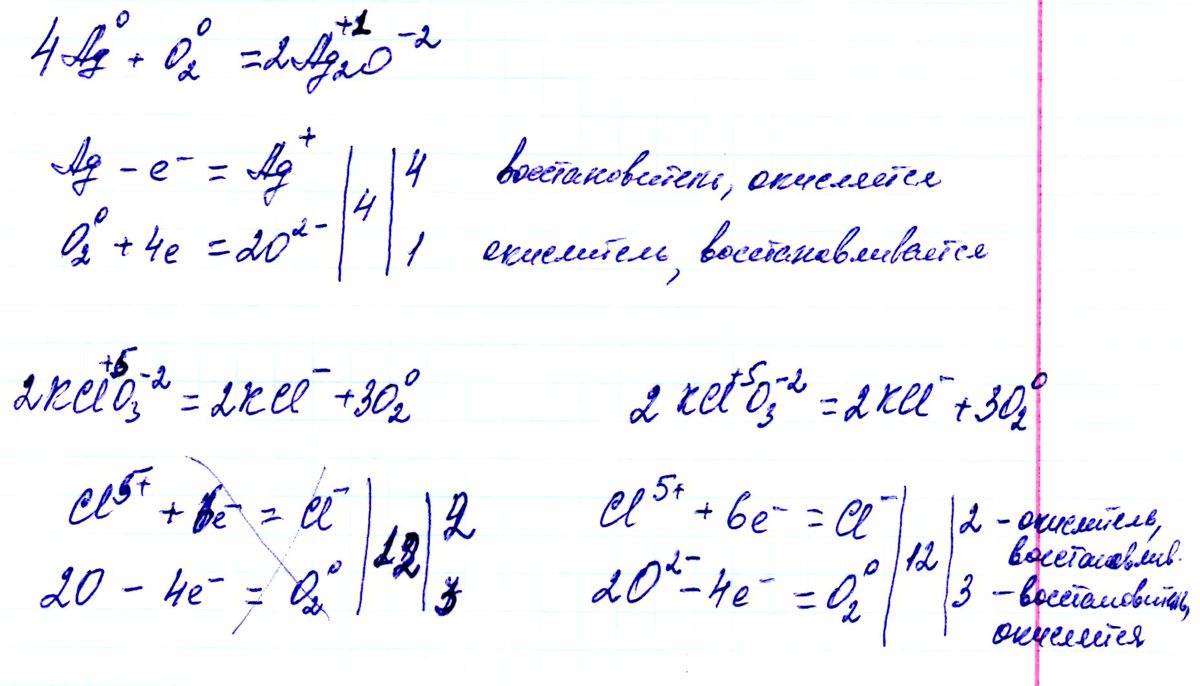 4Ag⁰ + O₂⁰ = 2Ag₂⁺¹O⁻²
Ag − e⁻ = Ag⁺ | 4 | 4 восстановитель, окисляется
O₂⁰ + 4e = 2O²⁻ | 1 окислитель, восстанавливается
2KCl⁺⁵O₃⁻² = 2KCl⁻ + 3O₂⁰
Cl⁵⁺ + 6e⁻ = Cl⁻ | 12 | 2
2O − 4e⁻ = O₂⁰ | 3
2KCl⁺⁵O₃⁻² = 2KCl⁻ + 3O₂⁰
Cl⁵⁺ + 6e⁻ = Cl⁻ | 12 | 2 – окислитель,
восстановлив.
2O²⁻ − 4e⁻ = O₂⁰ | 3 – восстановитель,
окисляется